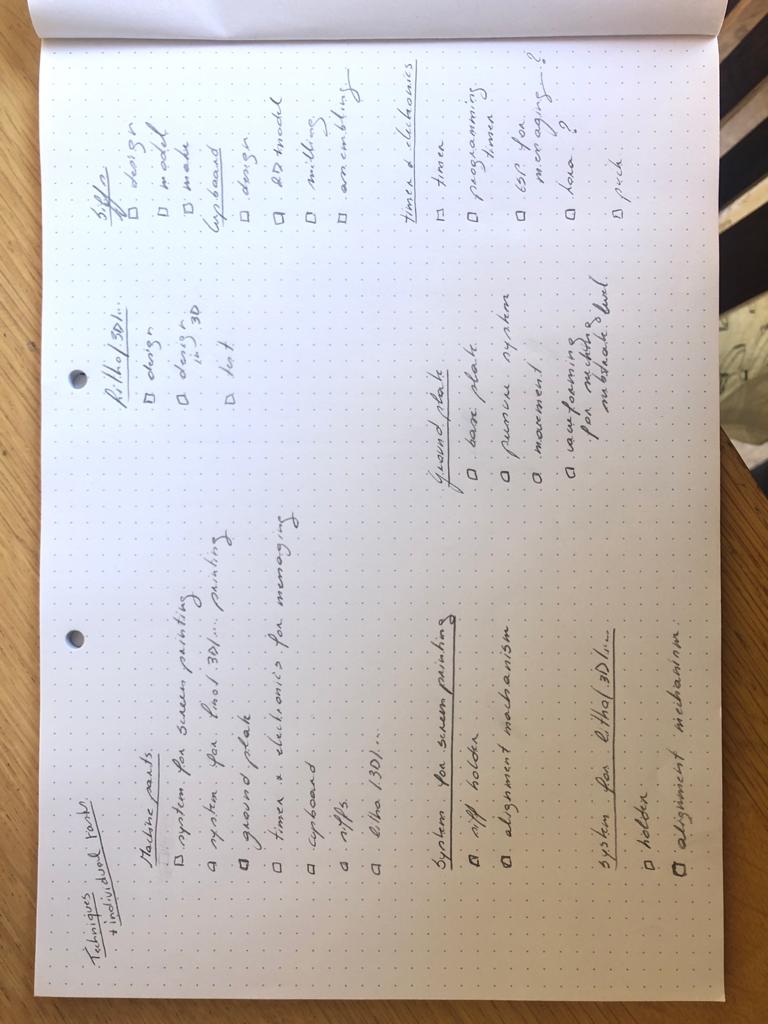 Techniques
+ individual parts.
Machine parts.
system for screen printing
system for lino/3D/.... printing
ground plate
timer + electronics for managing
cupboard
siffs.
litho/3D/....
System for screen printing
siff holder
alignment mechanism
System for litho/3D/....
holder
alignment mechanism.
Litho/3D/...
design
design
in 3D
test
Ground plate
base plate
system
movement
vacuforming
for
substrate level
Siffs
design
model
make
Cupboard
design
model
milling
assembling
timer + electronics
timer
programming
timer
ESP for
managing?